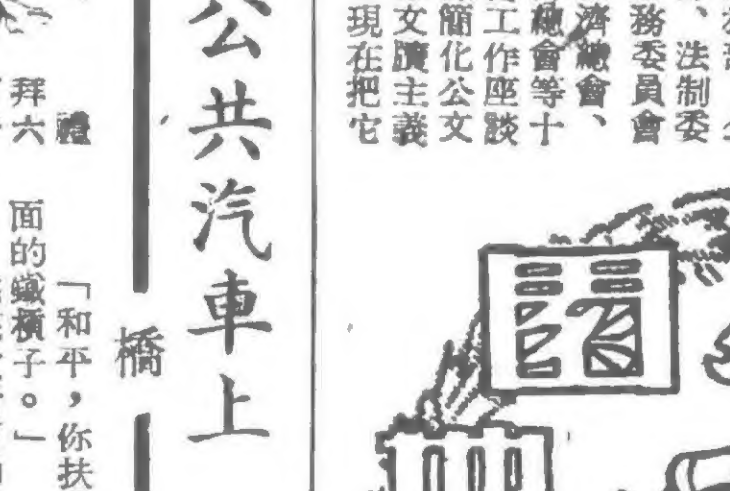 、法制委
務委員會
濟總會、
總會等十
工作座談
簡化公文
文牘主義
現在把它
公共汽車上
橋
禮
拜六
「和平，你扶
面的鐵槓子。」